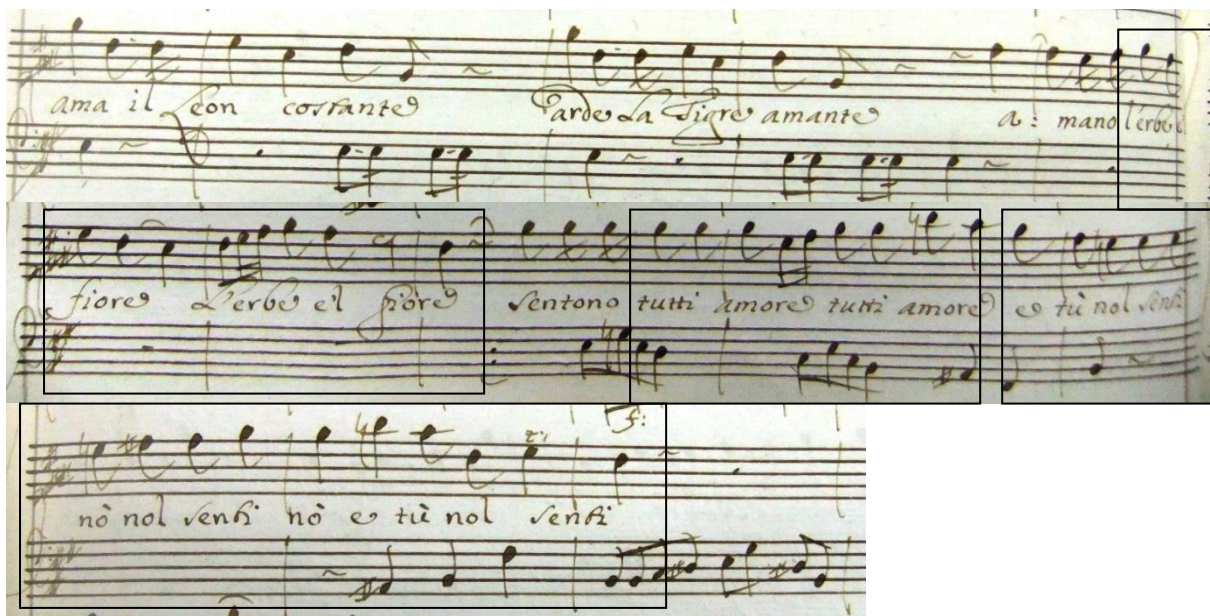 ama il Leon costante arde La Tigre amante a: mano l'erbe e
fiore L'erbe e'l fiore sentono tutti amore tutti amore e tù nol senti
f:
nò nol senti nò e tù nol senti